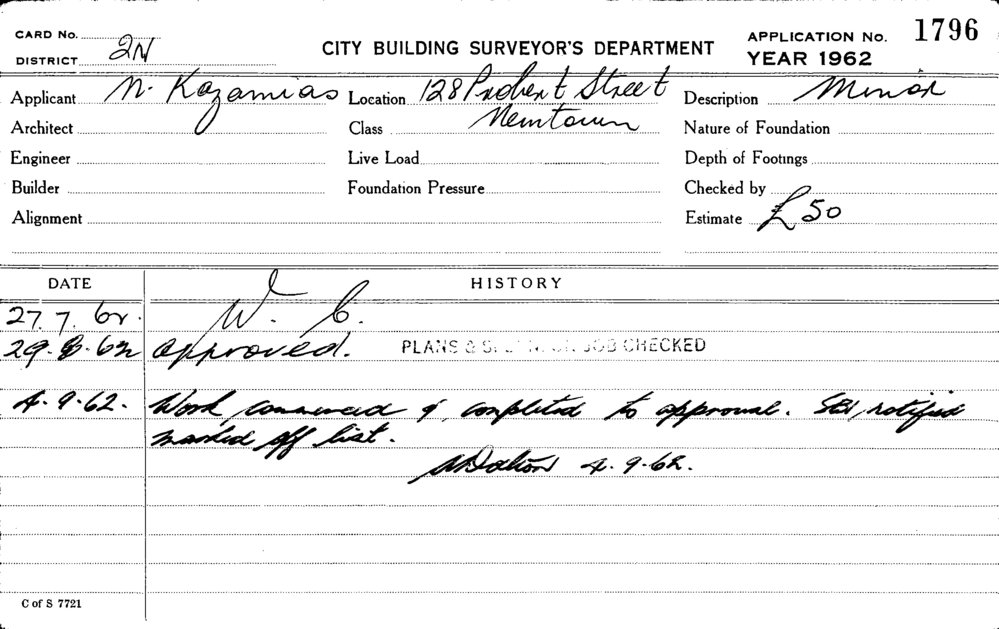 CARD No.
DISTRICT 2N
CITY BUILDING SURVEYOR'S DEPARTMENT
APPLICATION No. 1796
YEAR 1962
Applicant N. Kazamias
Location 128 Probert Street
Description Minor
Architect
Class Newtown
Nature of Foundation
Engineer
Live Load
Depth of Footings
Builder
Foundation Pressure
Checked by
Alignment
Estimate £50
DATE
HISTORY
27.7.62. W. C.
29.8.62 approved. PLANS & JOB CHECKED
4.9.62. Work commenced & completed to approval. notified
marked off list.
Dalton 4.9.62.
C of S 7721